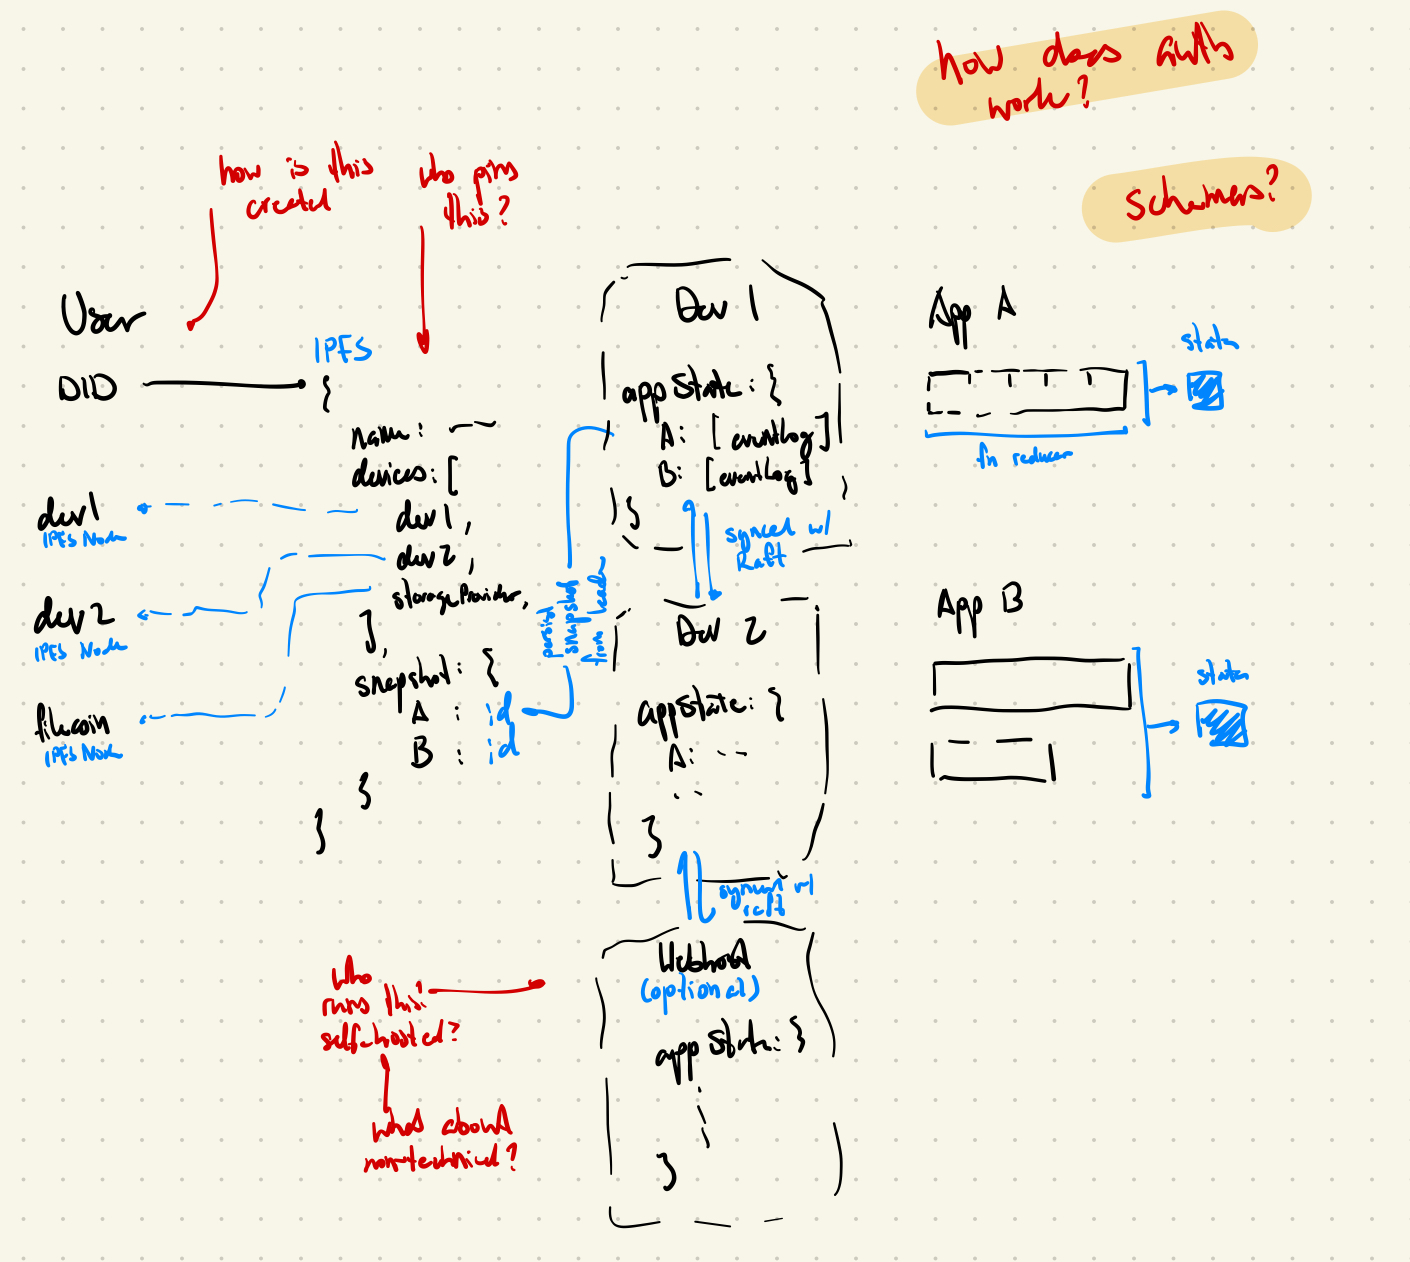 how does auth
work?
schemas?
how is this
created
who pins
this?
User
DID
IPFS
{
name:
devices: [
dev1,
dev2,
storageProvider,
],
snapshot: {
A : id
B : id
}
}
dev1
IPFS Node
dev2
IPFS Node
filecoin
IPFS Node
persist
snapshot
from leader
Dev 1
appState: {
A: [eventLog]
B: [eventLog]
}
synced w/
Raft
Dev 2
appState: {
A: ...
..
}
synced w/
raft
Webhost
(optional)
appState: {
}
who
runs this?
self-hosted?
what about
non-technical?
App A
state
fn reducer
App B
state